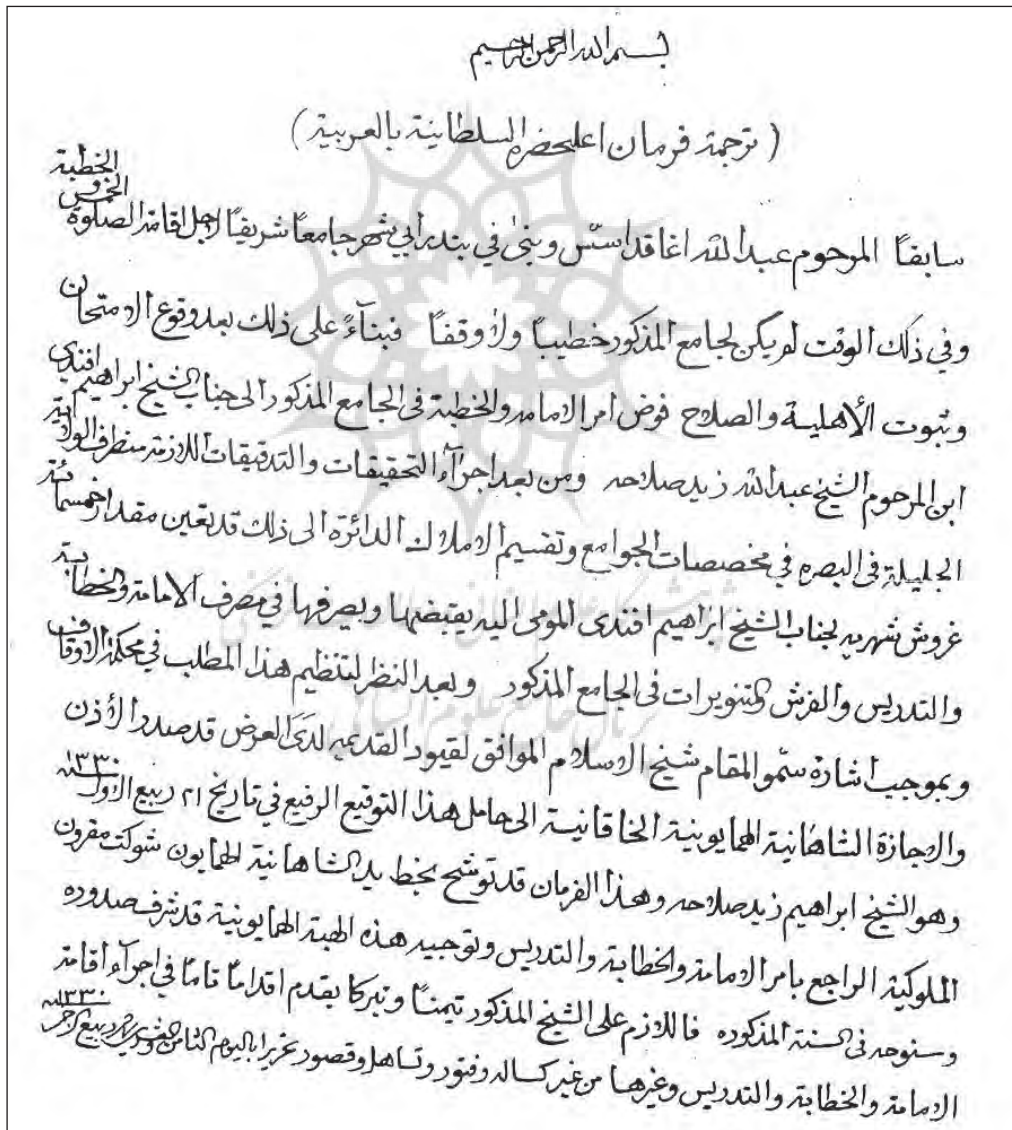 بسم الله الرحمن الرحيم
(ترجمة فرمان اعليحضرة السلطانية بالعربية)
سابقاً المرحوم عبدالله اغا قد اسّس وبنىٰ في بندر أبي شهر جامعاً شريفاً لاجل اقامة الصلوة الخمس الخطبة
وفي ذلك الوقت لم يكن لجامع المذكور خطيباً ولا وقفاً فبنآءً على ذلك بعد وقوع الامتحان
وثبوت الأهلية والصلاح فوض امر الامامة والخطبة في الجامع المذكور الى جناب الشيخ ابراهيم افندي
ابن المرحوم الشيخ عبدالله زيد صلاحه ومن بعد اجرآء التحقيقات والتدقيقات اللازمة منطرف الولاية
الجليلة في البصره في مخصصات الجوامع وتقسيم الاملاك الدائرة الى ذلك قد تعين مقدار خمسمائة
غروش شهريه لجناب الشيخ ابراهيم افندى المومى اليه يقبضها ويصرفها في مصرف الامامة والخطابة
والتدريس والفرش والتنويرات في الجامع المذكور وبعد النظر لتنظيم هذا المطلب في محكمة الاوقاف
وبموجب أشارة سمّو المقام شيخ الاسلام الموافق لقيود القديمه لدى العرض قد صدر الأذن
والاجازة الشاهانية الهمايونية الخاقانية الى حامل هذا التوقيع الرفيع في تاريخ ٢١ ربيع الاول سنه ١٣٣٠
وهو الشيخ ابراهيم زيد صلاحه وهذا الفرمان قد توشح بخط يد الشاهانية الهمايون شوكت مقرون
الملوكية الراجع بامر الامامة والخطابة والتدريس وتوجيه هذه الهبة الهمايونية قد شرف صدوره
وسنوحه في السنة المذكوره فاللازم على الشيخ المذكور تيمناً وتبركا يقدم اقداماً تاماً في اجرآء اقامة
الامامة والخطابة والتدريس وغيرها من غير كساله وفتور وتساهل وقصور تحريرا باليوم الثامن ربيع الاخر سنه ١٣٣٠